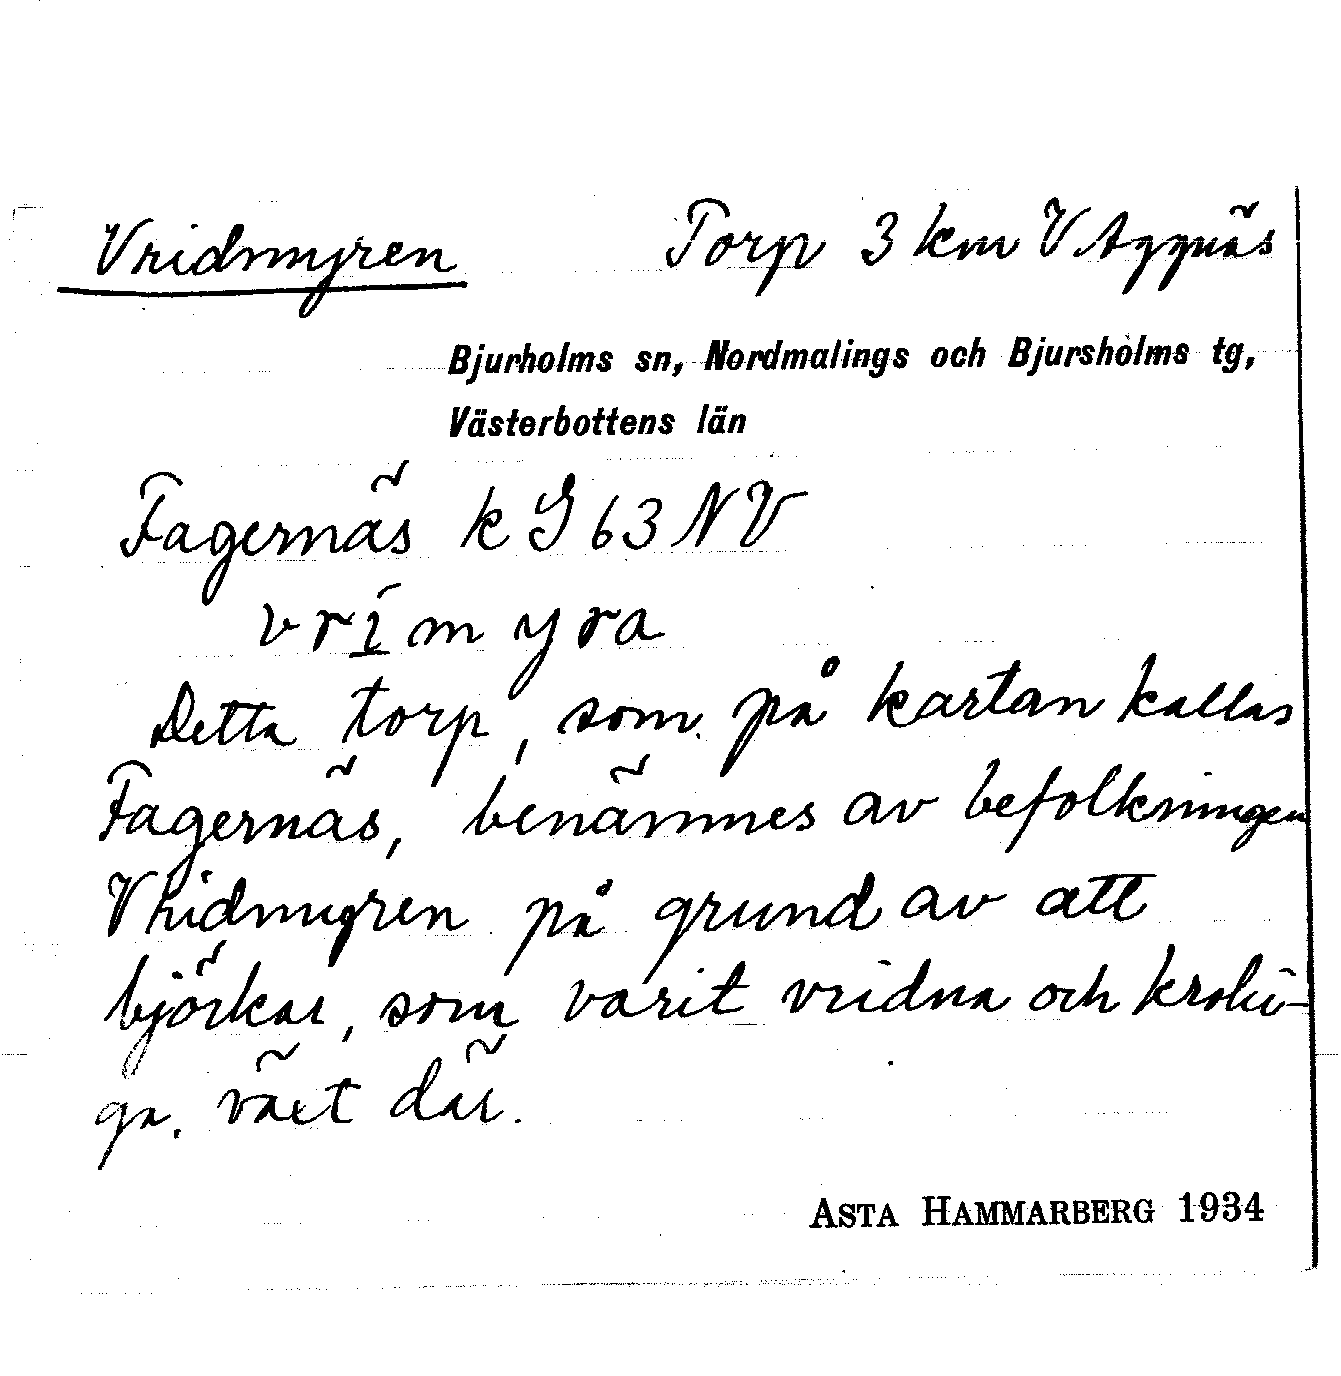 Vridmyren Torp 3 km V Agnäs
Bjurholms sn, Nordmalings och Bjursholms tg,
Västerbottens län
Fagernäs k G 63 NV
vrímyra
Detta torp, som på kartan kallas
Fagernäs, benämnes av befolkningen
Vridmyren på grund av att
björkar, som varit vridna och kroki-
ga, växt där.
ASTA HAMMARBERG 1934